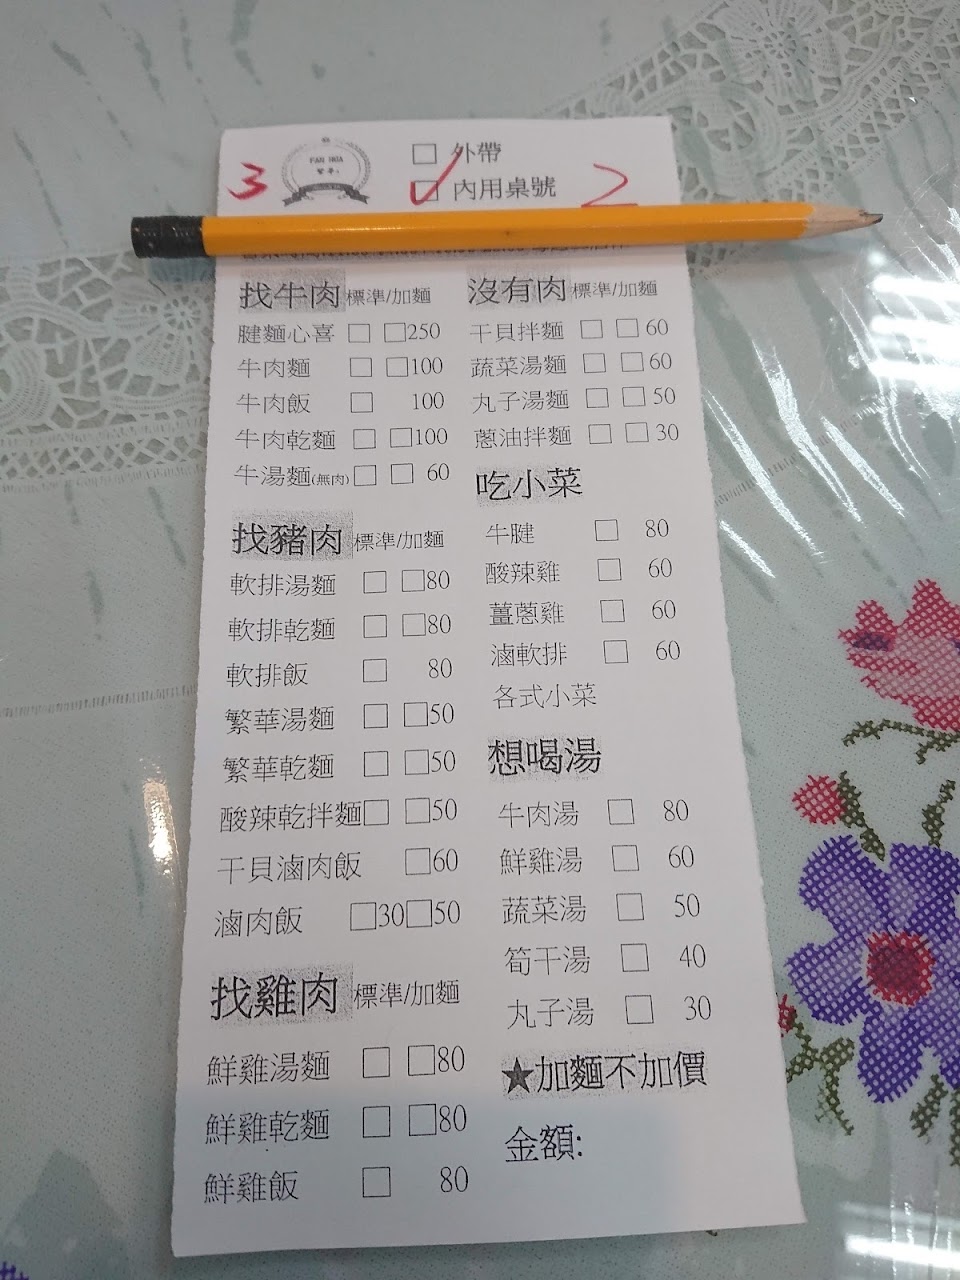 3
FAN HUA
繁華
□ 外帶
☑ 內用桌號 2
找牛肉 標準/加麵
腱麵心喜 □ □250
牛肉麵 □ □100
牛肉飯 □ 100
牛肉乾麵 □ □100
牛湯麵(無肉) □ □ 60
找豬肉 標準/加麵
軟排湯麵 □ □80
軟排乾麵 □ □80
軟排飯 □ 80
繁華湯麵 □ □50
繁華乾麵 □ □50
酸辣乾拌麵□ □50
干貝滷肉飯 □60
滷肉飯 □30□50
找雞肉 標準/加麵
鮮雞湯麵 □ □80
鮮雞乾麵 □ □80
鮮雞飯 □ 80
沒有肉 標準/加麵
干貝拌麵 □ □60
蔬菜湯麵 □ □60
丸子湯麵 □ □50
蔥油拌麵 □ □30
吃小菜
牛腱 □ 80
酸辣雞 □ 60
薑蔥雞 □ 60
滷軟排 □ 60
各式小菜
想喝湯
牛肉湯 □ 80
鮮雞湯 □ 60
蔬菜湯 □ 50
筍干湯 □ 40
丸子湯 □ 30
★加麵不加價
金額: